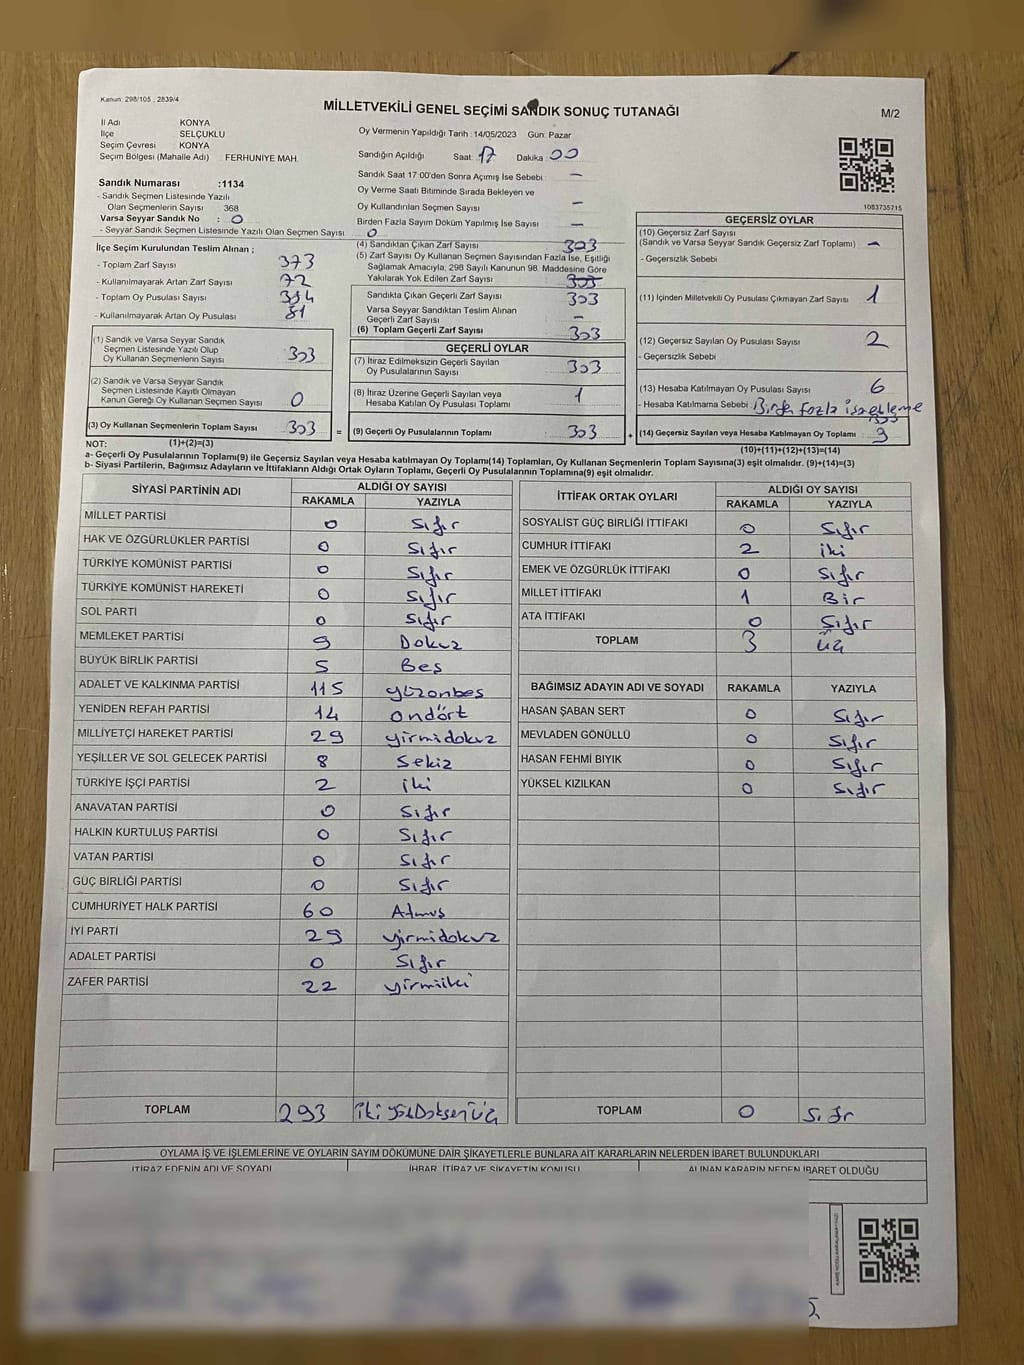 Kanun: 298/105 , 2839/4
MİLLETVEKİLİ GENEL SEÇİMİ SANDIK SONUÇ TUTANAĞI
M/2
İl Adı KONYA
İlçe SELÇUKLU
Seçim Çevresi KONYA
Seçim Bölgesi (Mahalle Adı) FERHUNİYE MAH.
Sandık Numarası :1134
- Sandık Seçmen Listesinde Yazılı
Olan Seçmenlerin Sayısı 368
Varsa Seyyar Sandık No : 0
- Seyyar Sandık Seçmen Listesinde Yazılı Olan Seçmen Sayısı 0
İlçe Seçim Kurulundan Teslim Alınan ;
- Toplam Zarf Sayısı 373
- Kullanılmayarak Artan Zarf Sayısı 72
- Toplam Oy Pusulası Sayısı
- Kullanılmayarak Artan Oy Pusulası 81
(1) Sandık ve Varsa Seyyar Sandık
Seçmen Listesinde Yazılı Olup
Oy Kullanan Seçmenlerin Sayısı 303
(2) Sandık ve Varsa Seyyar Sandık
Seçmen Listesinde Kayıtlı Olmayan
Kanun Gereği Oy Kullanan Seçmen Sayısı 0
(3) Oy Kullanan Seçmenlerin Toplam Sayısı 303 =
Oy Vermenin Yapıldığı Tarih : 14/05/2023 Gün: Pazar
Sandığın Açıldığı Saat: 17 Dakika 00
Sandık Saat 17:00'den Sonra Açımış İse Sebebi : -
Oy Verme Saati Bitiminde Sırada Bekleyen ve
Oy Kullandırılan Seçmen Sayısı : -
Birden Fazla Sayım Döküm Yapılmış İse Sayısı : -
(4) Sandıktan Çıkan Zarf Sayısı 303
(5) Zarf Sayısı Oy Kullanan Seçmen Sayısından Fazla İse, Eşitliği
Sağlamak Amacıyla, 298 Sayılı Kanunun 98. Maddesine Göre
Yakılarak Yok Edilen Zarf Sayısı 303
Sandıkta Çıkan Geçerli Zarf Sayısı 303
Varsa Seyyar Sandıktan Teslim Alınan
Geçerli Zarf Sayısı -
(6) Toplam Geçerli Zarf Sayısı 303
GEÇERLİ OYLAR
(7) İtiraz Edilmeksizin Geçerli Sayılan
Oy Pusulalarının Sayısı 303
(8) İtiraz Üzerine Geçerli Sayılan veya
Hesaba Katılan Oy Pusulası Toplamı 1
(9) Geçerli Oy Pusulalarının Toplamı 303 +
1083735715
GEÇERSİZ OYLAR
(10) Geçersiz Zarf Sayısı
(Sandık ve Varsa Seyyar Sandık Geçersiz Zarf Toplamı) -
- Geçersizlik Sebebi
(11) İçinden Milletvekili Oy Pusulası Çıkmayan Zarf Sayısı 1
(12) Geçersiz Sayılan Oy Pusulası Sayısı 2
- Geçersizlik Sebebi
(13) Hesaba Katılmayan Oy Pusulası Sayısı 6
- Hesaba Katılmama Sebebi : Birden fazla işaretleme
(14) Geçersiz Sayılan veya Hesaba Katılmayan Oy Toplamı 303 9
(10)+(11)+(12)+(13)=(14)
NOT: (1)+(2)=(3)
a- Geçerli Oy Pusulalarının Toplamı(9) ile Geçersiz Sayılan veya Hesaba katılmayan Oy Toplamı(14) Toplamları, Oy Kullanan Seçmenlerin Toplam Sayısına(3) eşit olmalıdır. (9)+(14)=(3)
b- Siyasi Partilerin, Bağımsız Adayların ve İttifakların Aldığı Ortak Oyların Toplamı, Geçerli Oy Pusulalarının Toplamına(9) eşit olmalıdır.
SİYASİ PARTİNİN ADI ALDIĞI OY SAYISI
RAKAMLA YAZIYLA
MİLLET PARTİSİ 0 Sıfır
HAK VE ÖZGÜRLÜKLER PARTİSİ 0 Sıfır
TÜRKİYE KOMÜNİST PARTİSİ 0 Sıfır
TÜRKİYE KOMÜNİST HAREKETİ 0 Sıfır
SOL PARTİ 0 Sıfır
MEMLEKET PARTİSİ 9 Dokuz
BÜYÜK BİRLİK PARTİSİ 5 Beş
ADALET VE KALKINMA PARTİSİ 115 yüzonbeş
YENİDEN REFAH PARTİSİ 14 ondört
MİLLİYETÇİ HAREKET PARTİSİ 29 yirmidokuz
YEŞİLLER VE SOL GELECEK PARTİSİ 8 Sekiz
TÜRKİYE İŞÇİ PARTİSİ 2 iki
ANAVATAN PARTİSİ 0 Sıfır
HALKIN KURTULUŞ PARTİSİ 0 Sıfır
VATAN PARTİSİ 0 Sıfır
GÜÇ BİRLİĞİ PARTİSİ 0 Sıfır
CUMHURİYET HALK PARTİSİ 60 Atmış
İYİ PARTİ 29 yirmidokuz
ADALET PARTİSİ 0 Sıfır
ZAFER PARTİSİ 22 yirmiiki
TOPLAM 293 ikiyüzDoksenüç
İTTİFAK ORTAK OYLARI ALDIĞI OY SAYISI
RAKAMLA YAZIYLA
SOSYALİST GÜÇ BİRLİĞİ İTTİFAKI 0 Sıfır
CUMHUR İTTİFAKI 2 iki
EMEK VE ÖZGÜRLÜK İTTİFAKI 0 Sıfır
MİLLET İTTİFAKI 1 Bir
ATA İTTİFAKI 0 Sıfır
TOPLAM 3 üç
BAĞIMSIZ ADAYIN ADI VE SOYADI RAKAMLA YAZIYLA
HASAN ŞABAN SERT 0 Sıfır
MEVLADEN GÖNÜLLÜ 0 Sıfır
HASAN FEHMİ BIYIK 0 Sıfır
YÜKSEL KIZILKAN 0 Sıfır
TOPLAM 0 Sıfır
OYLAMA İŞ VE İŞLEMLERİNE VE OYLARIN SAYIM DÖKÜMÜNE DAİR ŞİKAYETLERLE BUNLARA AİT KARARLARIN NELERDEN İBARET BULUNDUKLARI
İTİRAZ EDENİN ADI VE SOYADI İHBAR, İTİRAZ VE ŞİKAYETİN KONUSU ALINAN KARARIN NEDEN İBARET OLDUĞU